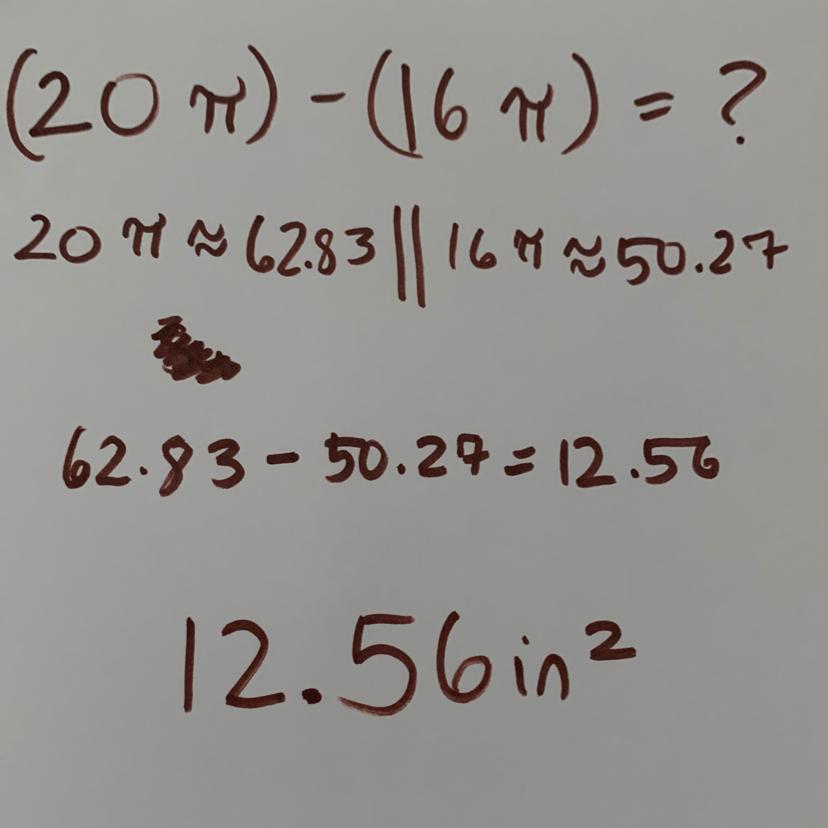 (20 π) - (16 π) = ?
20 π ≈ 62.83 || 16 π ≈ 50.27
62.83 - 50.27 = 12.56
12.56 in²